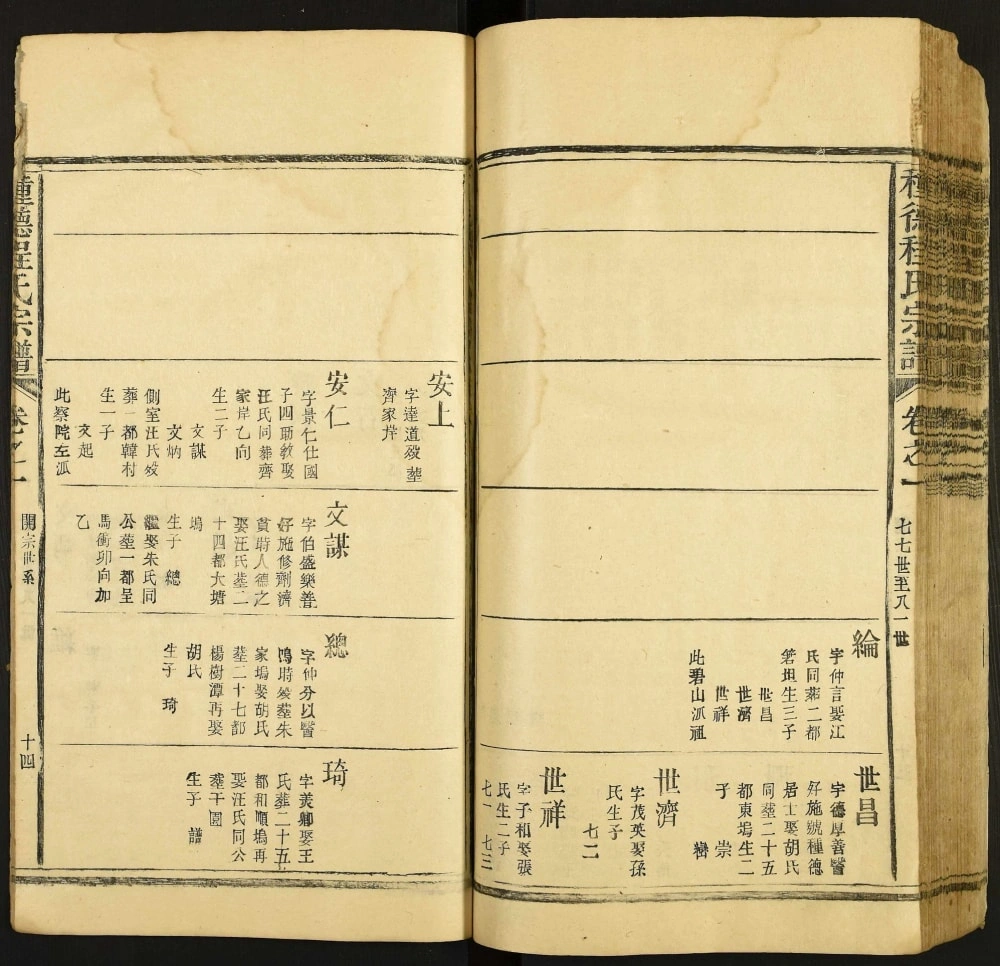 種德程氏宗譜
卷之一
七七世至八一世
綸
字仲言娶江
氏同葬二都
箬坦生三子
世昌
世濟
世祥
此碧山派祖
世昌
字德厚善醫
好施號種德
居士娶胡氏
同塟二十五
都東塢生二
子 崇 巒
世濟
字茂英娶孫
氏生子
七二
世祥
字子和娶張
氏生二子
七一 七三
安上
字達道歿塟
齊家岸
安仁
字景仁仕國
子四助教娶
汪氏同葬齊
家岸乙向
生二子
文謀
文炳
側室汪氏歿
葬一都韓村
生一子
文起
此察院左派
文謀
字伯盛樂善
好施修劑濟
貧時人德之
娶汪氏塟二
十四都大塘
塢
生子 總
繼娶朱氏同
公塟一都呈
馬衝卯向加
乙
總
字仲分以醫
鳴時歿塟朱
家塢娶胡氏
塟二十七都
楊樹潭再娶
胡氏
生子 琦
琦
字美卿娶王
氏葬二十五
都和順塢再
娶汪氏同公
塟干園
生子 譜
種德程氏宗譜
卷之一
開宗世系
十四